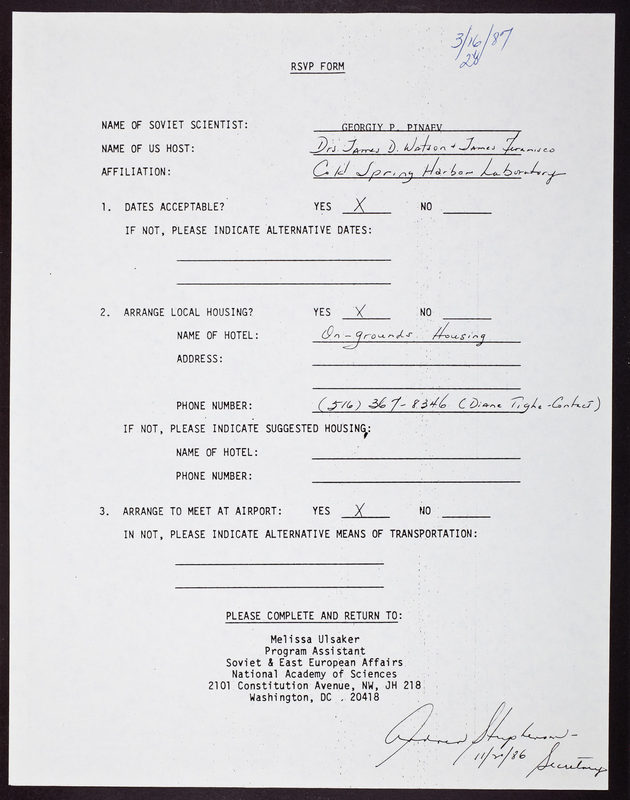 3/16/87
RSVP FORM
NAME OF SOVIET SCIENTIST: GEORGIY P. PINAEV
NAME OF US HOST: Drs. James D. Watson + James Feramisco
AFFILIATION: Cold Spring Harbor Laboratory
1. DATES ACCEPTABLE? YES X NO
IF NOT, PLEASE INDICATE ALTERNATIVE DATES:
2. ARRANGE LOCAL HOUSING? YES X NO
NAME OF HOTEL: On-grounds Housing
ADDRESS:
PHONE NUMBER: (516) 367-8346 (Diane Tighe-Contact)
IF NOT, PLEASE INDICATE SUGGESTED HOUSING:
NAME OF HOTEL:
PHONE NUMBER:
3. ARRANGE TO MEET AT AIRPORT: YES X NO
IN NOT, PLEASE INDICATE ALTERNATIVE MEANS OF TRANSPORTATION:
PLEASE COMPLETE AND RETURN TO:
Melissa Ulsaker
Program Assistant
Soviet & East European Affairs
National Academy of Sciences
2101 Constitution Avenue, NW, JH 218
Washington, DC . 20418
Stephenson-
11/20/86 Secretary